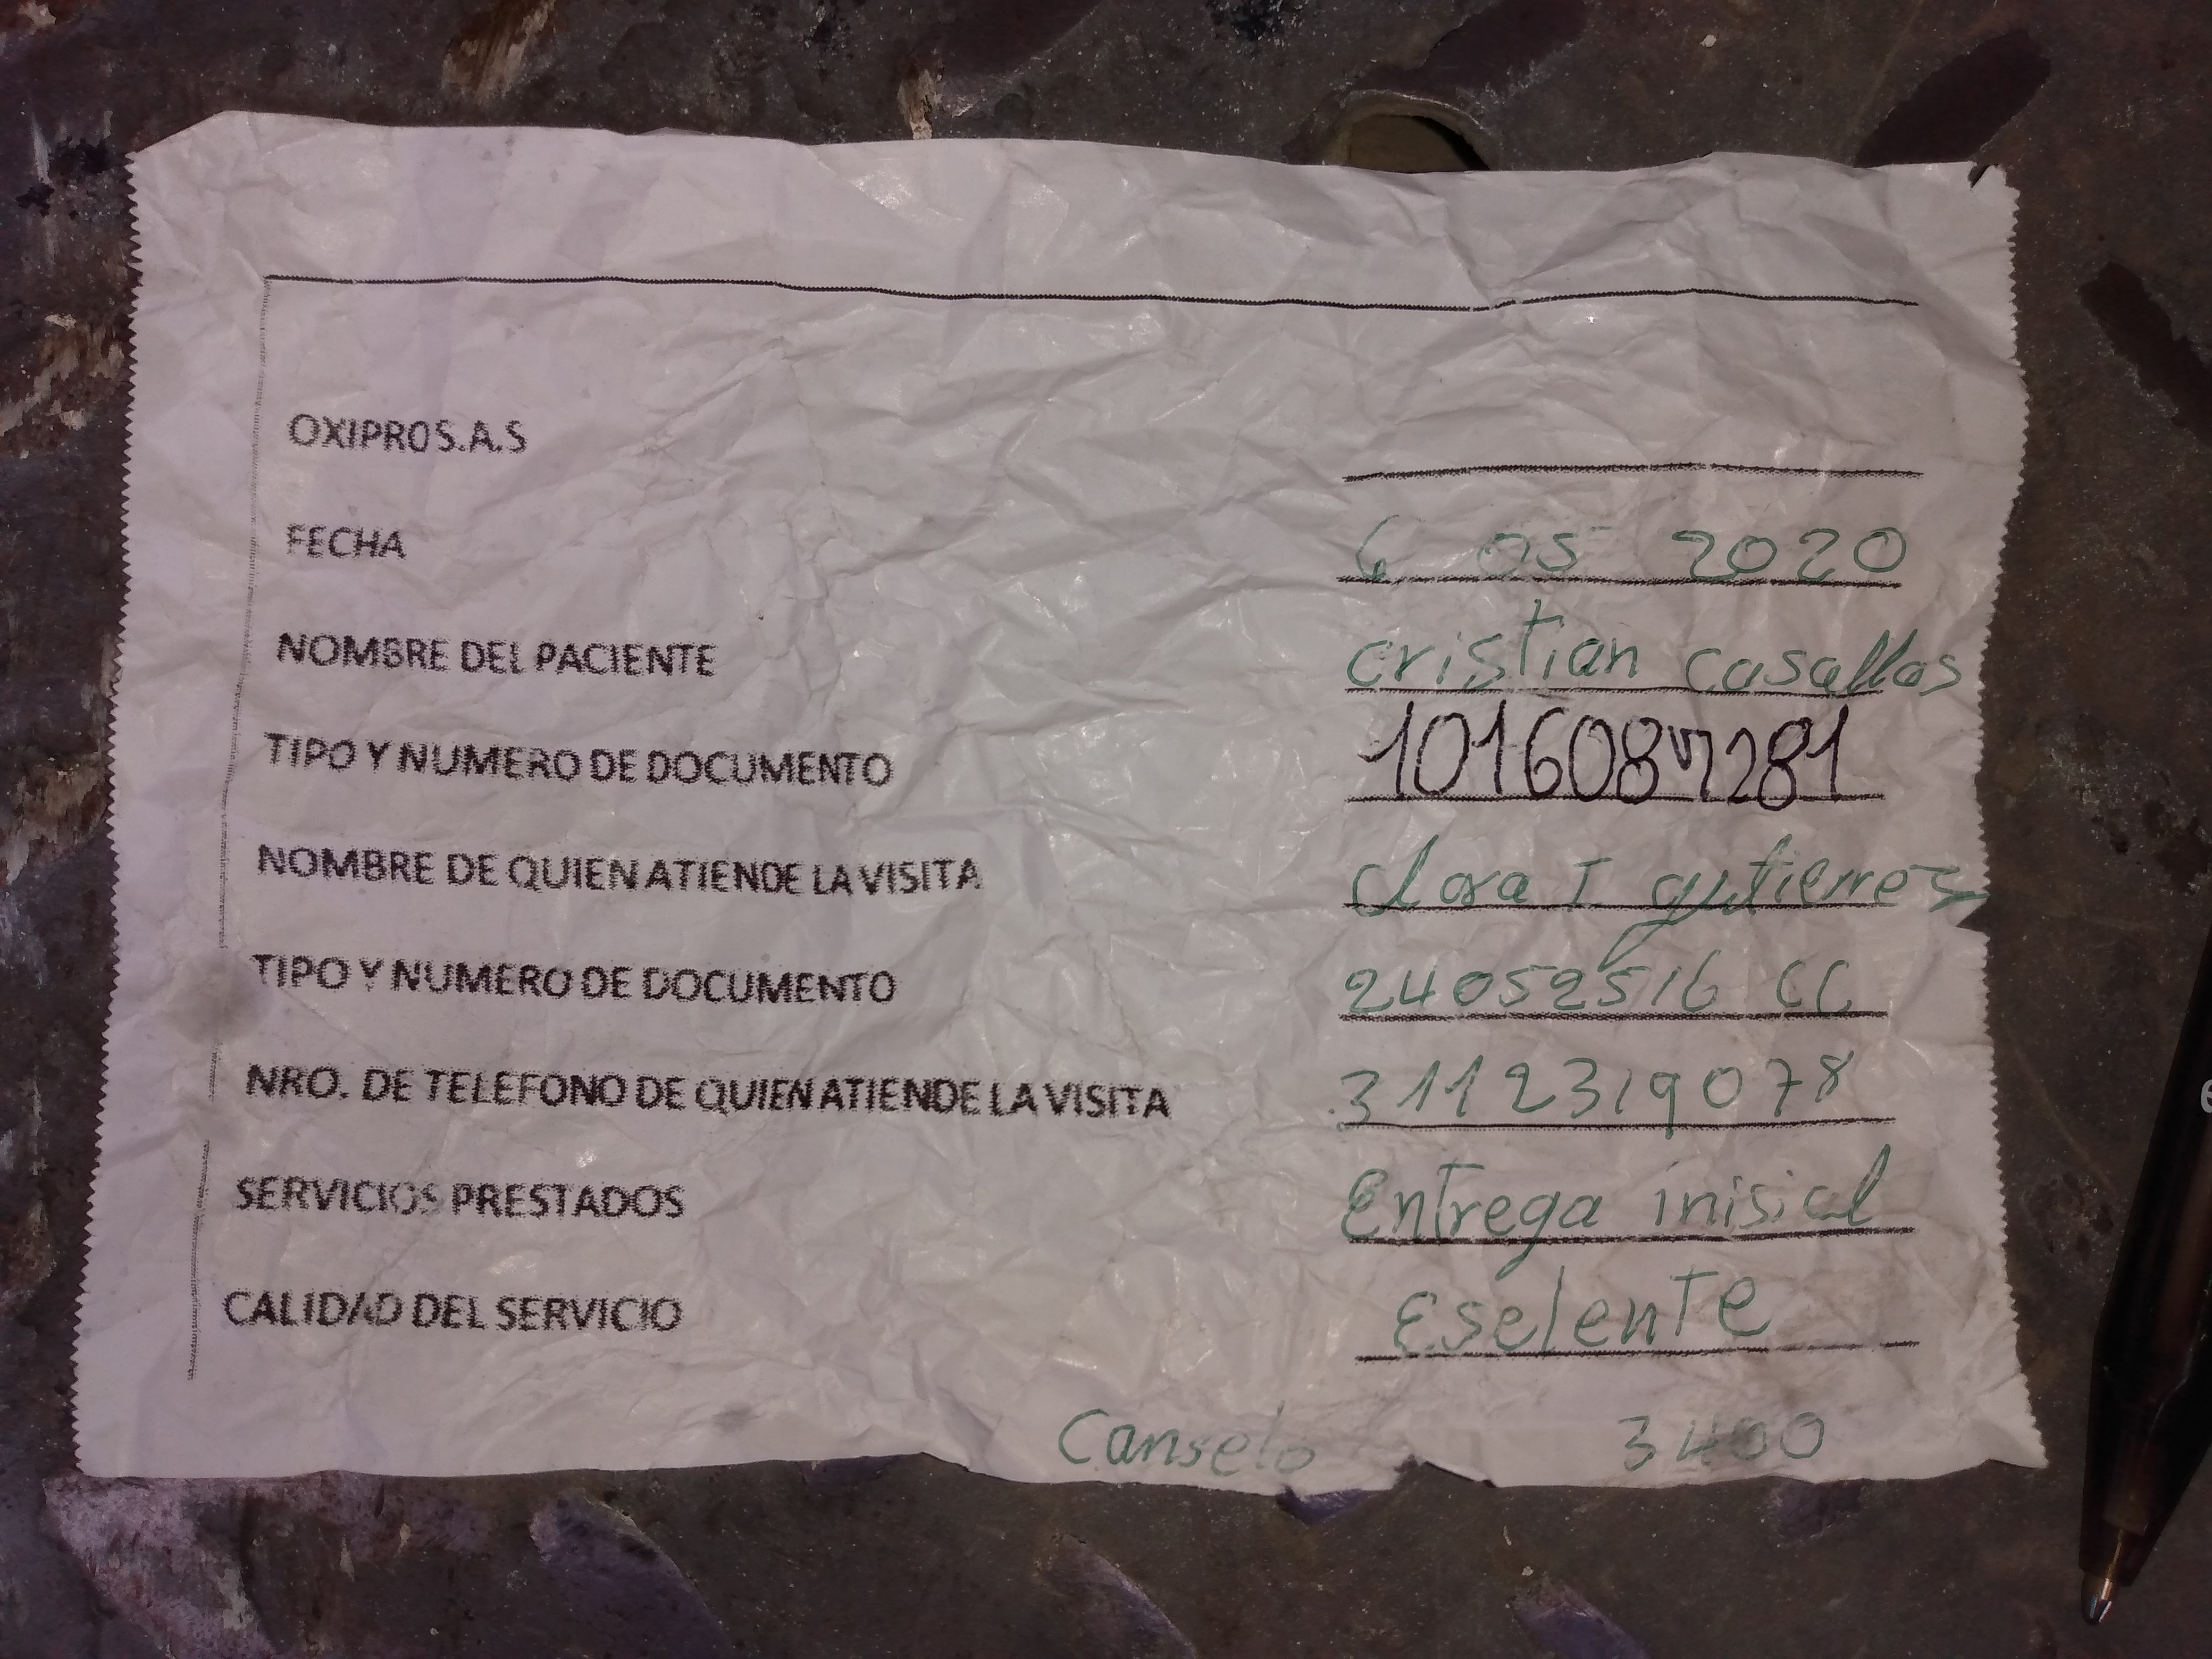 OXIPRO S.A.S
FECHA 6 05 2020
NOMBRE DEL PACIENTE cristian casallas
TIPO Y NUMERO DE DOCUMENTO 1016087281
NOMBRE DE QUIEN ATIENDE LA VISITA clara I. gutierrez
TIPO Y NUMERO DE DOCUMENTO 24052516 CC
NRO. DE TELEFONO DE QUIEN ATIENDE LA VISITA 3112319078
SERVICIOS PRESTADOS Entrega inisial
CALIDAD DEL SERVICIO Eselente
Canselo 3400